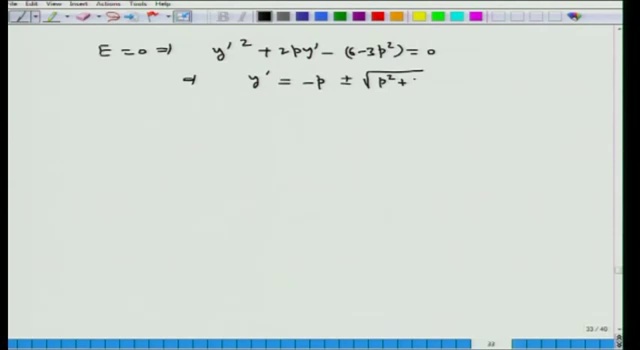 Edit View Insert Actions Tools Help
E = 0 ⇒ y'² + 2py' - (6-3p²) = 0
⇒ y' = -p ± √p² +
33 / 40
33